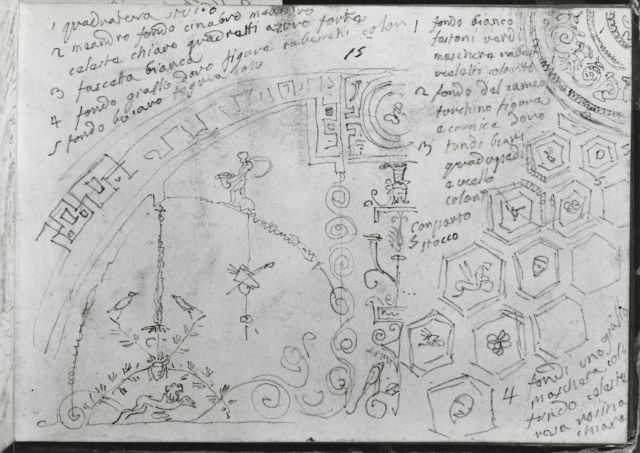 1 quadratura stucco
2 meandro fondo cinabro
celeste chiaro quadretti azuro forte
3 fascetta bianca
4 fondo giallo doro figure rabeschi color
5 fondo bianco figure
15
1 fondo bianco
festoni verdi
maschere
ucelletti coloriti
2 fondo del cameo
turchino figura
e cornice doro
3 fondi
quadrupedi
e ucello
colori
comparto
Stocco
4 fondi uno giallo
maschera
fondo celeste
rosa rosina
chiara